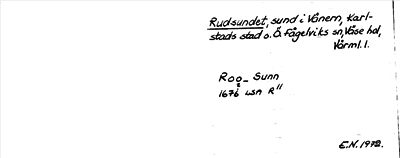 Rudsundet, sund i Vänern, Karl-
stads stad o. Ö. Fågelviks sn, Väse hd,
Värml. l.
Roo_ Sunn
1676 LSA R"
E.N. 1972.